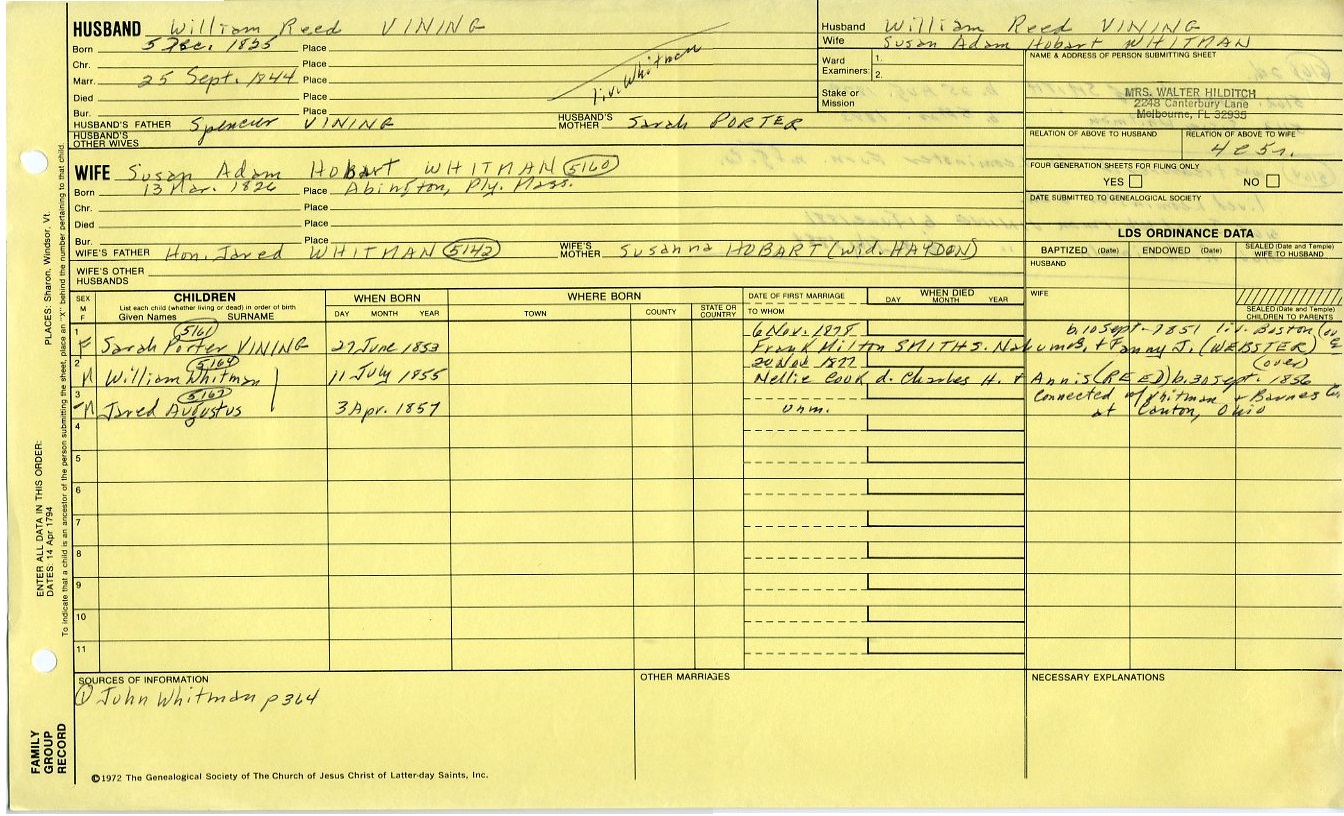 HUSBAND William Reed VINING
Born 5 Dec. 1825 Place
Chr. Place
Marr. 25 Sept. 1844 Place
Died Place
Bur. Place
liv. Whitman
HUSBAND'S FATHER Spencer VINING HUSBAND'S MOTHER Sarah PORTER
HUSBAND'S OTHER WIVES
Husband William Reed VINING
Wife Susan Adam Hobart WHITMAN
Ward Examiners: 1.
2.
Stake or Mission
NAME & ADDRESS OF PERSON SUBMITTING SHEET
MRS. WALTER HILDITCH
2248 Canterbury Lane
Melbourne, FL 32935
RELATION OF ABOVE TO HUSBAND RELATION OF ABOVE TO WIFE
4c5r.
FOUR GENERATION SHEETS FOR FILING ONLY
YES NO
DATE SUBMITTED TO GENEALOGICAL SOCIETY
WIFE Susan Adam Hobart WHITMAN 5160
Born 13 Mar. 1826 Place Abington, Ply. Mass.
Chr. Place
Died Place
Bur. Place
WIFE'S FATHER Hon. Jared WHITMAN 5142 WIFE'S MOTHER Susanna HOBART (wid. HAYDON)
WIFE'S OTHER HUSBANDS
LDS ORDINANCE DATA
BAPTIZED (Date) ENDOWED (Date) SEALED (Date and Temple) WIFE TO HUSBAND
HUSBAND
WIFE
SEALED (Date and Temple) CHILDREN TO PARENTS
SEX M F CHILDREN WHEN BORN WHERE BORN DATE OF FIRST MARRIAGE WHEN DIED
List each child (whether living or dead) in order of birth
Given Names SURNAME DAY MONTH YEAR TOWN COUNTY STATE OR COUNTRY TO WHOM DAY MONTH YEAR
1 5161 6 Nov. 1878 b. 10 Sept. 1851 liv. Boston
F Sarah Porter VINING 27 June 1853 Frank Milton SMITH S. Nahum B. + Fanny J. (WEBSTER)
2 5164 20 Nov 1877 (over)
M William Whitman 11 July 1855 Nellie Cook d. Charles H. + Annis (REED) b. 30 Sept. 1856
3 5167 Connected w/ Whitman + Barnes Co.
M Jared Augustus 3 Apr. 1857 unm. at Canton, Ohio
4
5
6
7
8
9
10
11
SOURCES OF INFORMATION
① John Whitman p 364
OTHER MARRIAGES
NECESSARY EXPLANATIONS
©1972 The Genealogical Society of The Church of Jesus Christ of Latter-day Saints, Inc.
FAMILY GROUP RECORD
ENTER ALL DATA IN THIS ORDER:
DATES: 14 Apr 1794
PLACES: Sharon, Windsor, Vt.
To indicate that a child is an ancestor of the person submitting the sheet, place an "X" behind the number pertaining to that child.